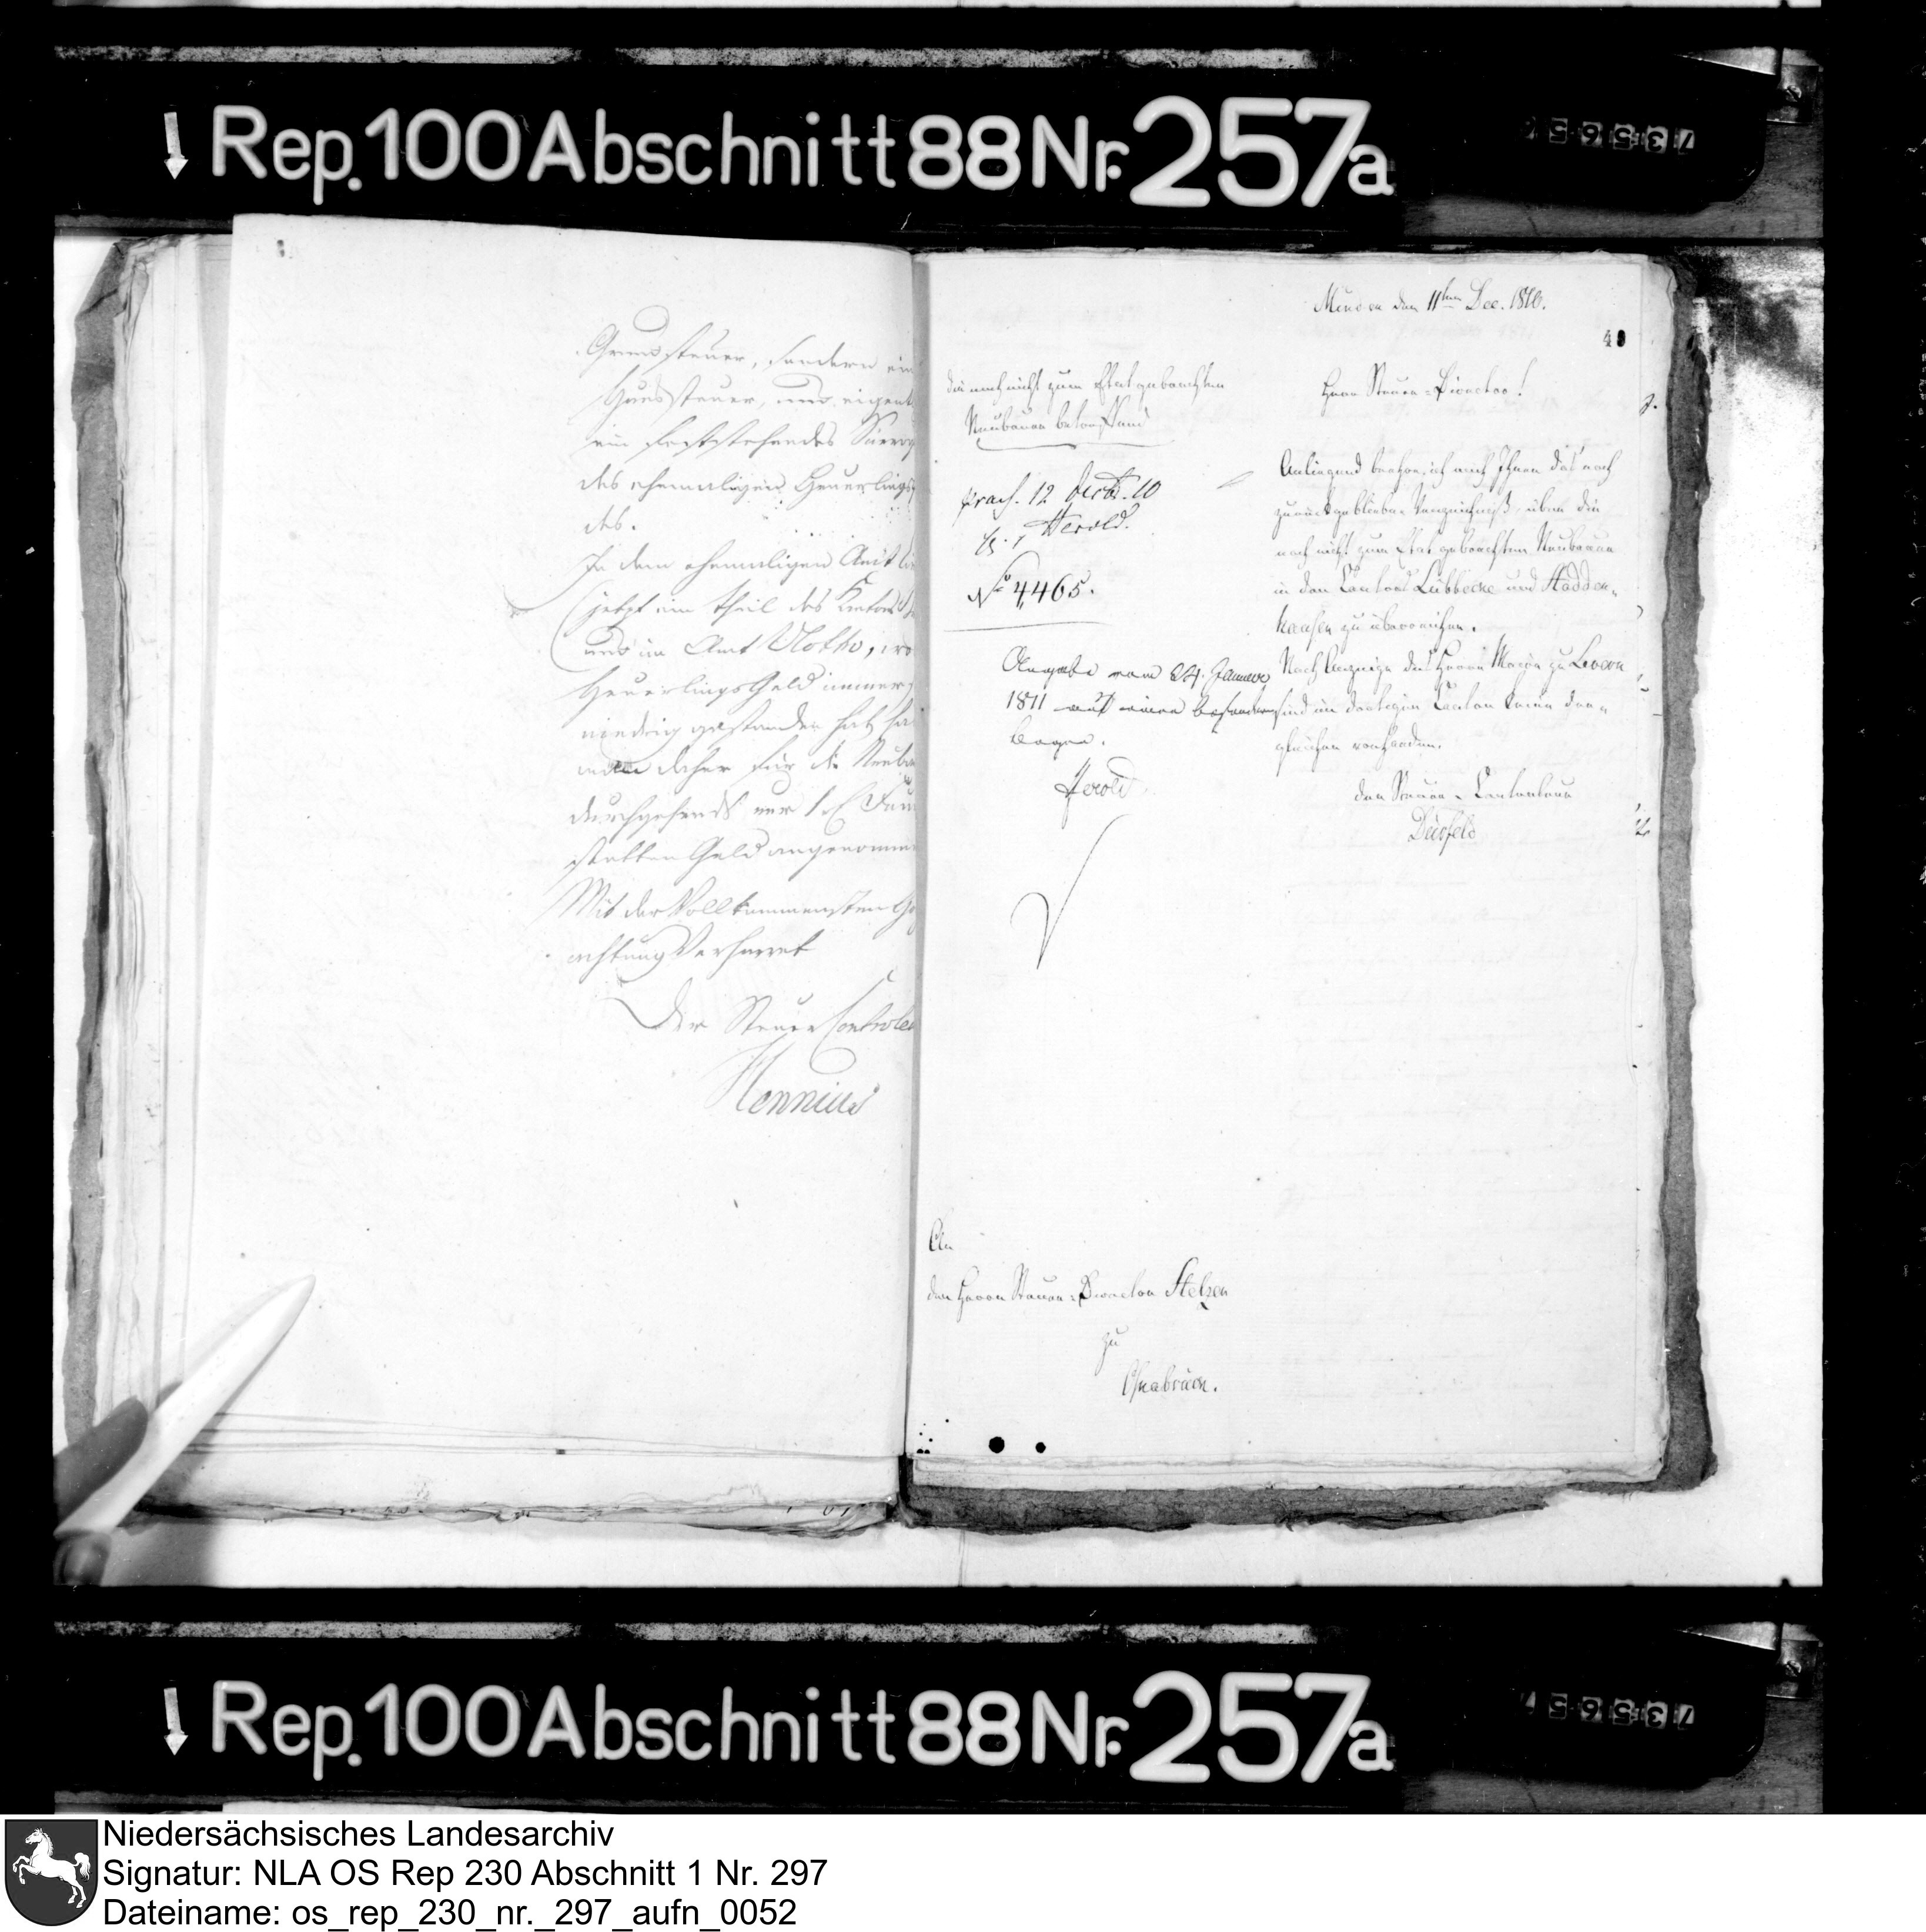 Rep. 100 Abschnitt 88 Nr. 257a
Grundsteuer, sondern ein
Haussteuer, und eigent
ein feststehendes Surrog
des ehemaligen Heuerlings
des.
In dem ehemaligen Amt
(jetzt ein Theil des Kantons
und im Amt Vlotho, wo
Heuerlings Geld immer
niedrig gestanden hat, ha
man daher für die Neub
durchgehends nur 1
stetten Geld angenomm
Mit der Vollkommensten Ho
achtung Verharret
Der Steuer Controle
Hennius
Minden den 11ten Dec. 1810.
49
die noch nicht zum Etat gebrachten
Neubauer betreffend
praes. 12 Decb. 10
Herold.
No 4,465.
Angabe vom 24. Januar
1811 auf einen besondern
Bogen.
Herold
Herr Steuer-Director!
Anliegend beehre ich mich Ihnen das noch
zurückgebliebene Verzeichniß, über die
noch nicht zum Etat gebrachten Neubauer
in den Cantons Lübbecke und Hadden-
hausen zu überreichen.
Nach Anzeige des Herrn Maire zu Levern
sind im dortigen Canton keine der-
gleichen vorhanden.
Der Steuer-Controleur
Dürfeld
An
den Herrn Steuer-Director Stelzer
zu
Osnabrück.
Rep. 100 Abschnitt 88 Nr. 257a
Niedersächsisches Landesarchiv
Signatur: NLA OS Rep 230 Abschnitt 1 Nr. 297
Dateiname: os_rep_230_nr._297_aufn_0052